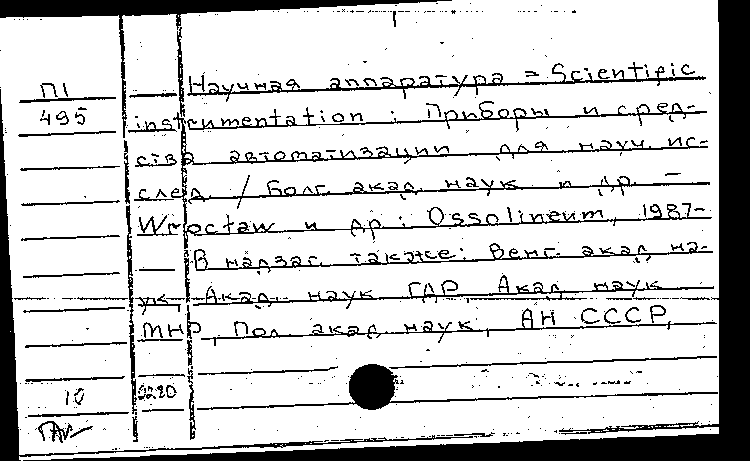 П1
495
Научная аппаратура = Scientific
instrumentation : Приборы и сред-
ства автоматизации для науч. ис-
след. / Болг. акад. наук и др. –
Wrocław и др.: Ossolineum, 1987–
В надзаг. также: Венг. акад. на-
ук, Акад. наук ГДР, Акад. наук
МНР, Пол. акад. наук, АН СССР,
10
9280